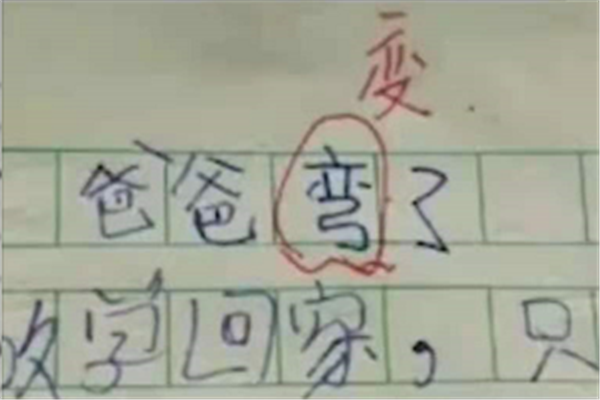 变.
爸爸弯了
放学回家，只